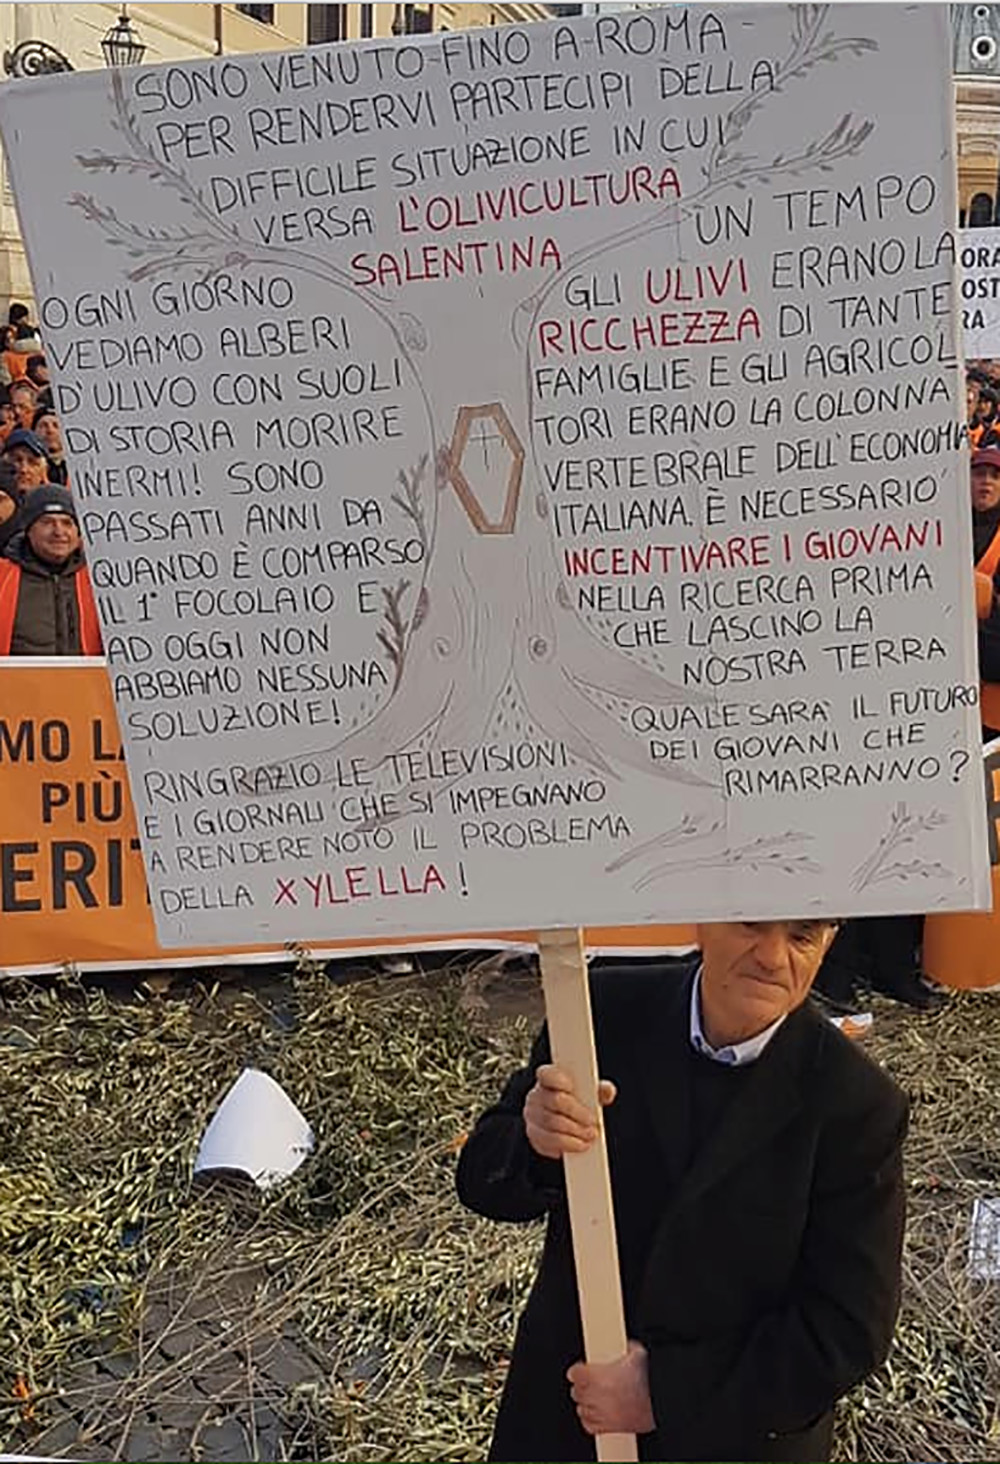 SONO VENUTO-FINO A-ROMA -
PER RENDERVI PARTECIPI DELLA
DIFFICILE SITUAZIONE IN CUI
VERSA L'OLIVICULTURA
SALENTINA
OGNI GIORNO
VEDIAMO ALBERI
D'ULIVO CON SUOLI
DI STORIA MORIRE
INERMI! SONO
PASSATI ANNI DA
QUANDO È COMPARSO
IL 1° FOCOLAIO E
AD OGGI NON
ABBIAMO NESSUNA
SOLUZIONE!
UN TEMPO
GLI ULIVI ERANO LA
RICCHEZZA DI TANTE
FAMIGLIE E GLI AGRICOL
TORI ERANO LA COLONNA
VERTEBRALE DELL'ECONOMIA
ITALIANA. È NECESSARIO
INCENTIVARE I GIOVANI
NELLA RICERCA PRIMA
CHE LASCINO LA
NOSTRA TERRA
QUALE SARÀ IL FUTURO
DEI GIOVANI CHE
RIMARRANNO?
RINGRAZIO LE TELEVISIONI
E I GIORNALI CHE SI IMPEGNANO
A RENDERE NOTO IL PROBLEMA
DELLA XYLELLA!
MO LA
PIÙ
ERIT
ORA
OST
RA